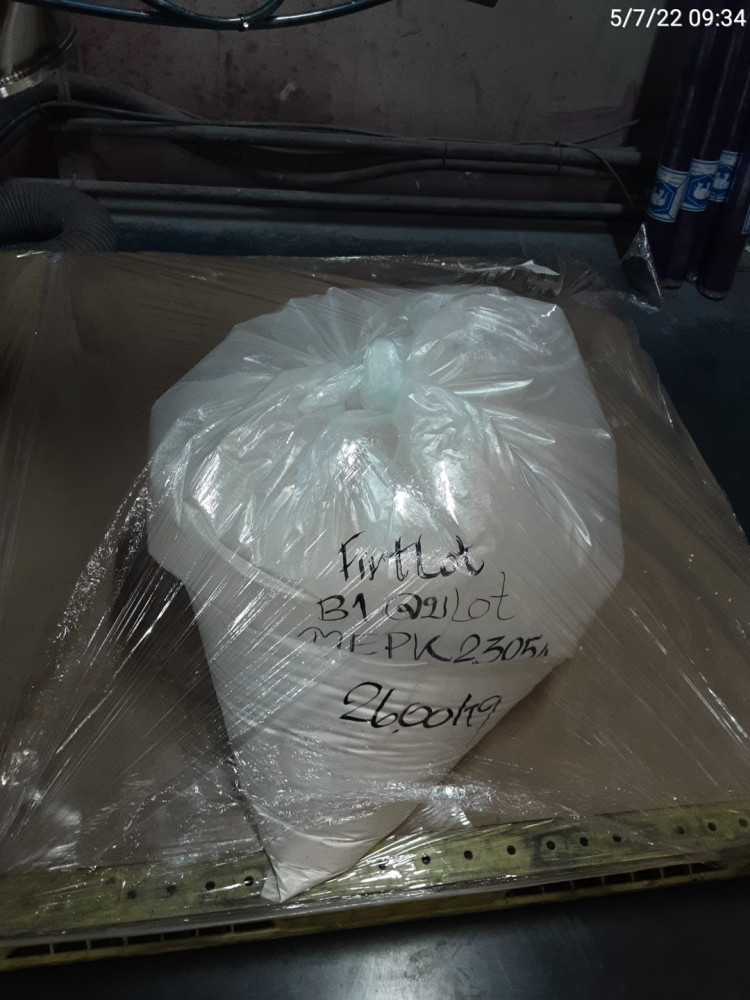 5/7/22 09:34
FirtLot
B1 Lot
MEPK2305
26.00Kg